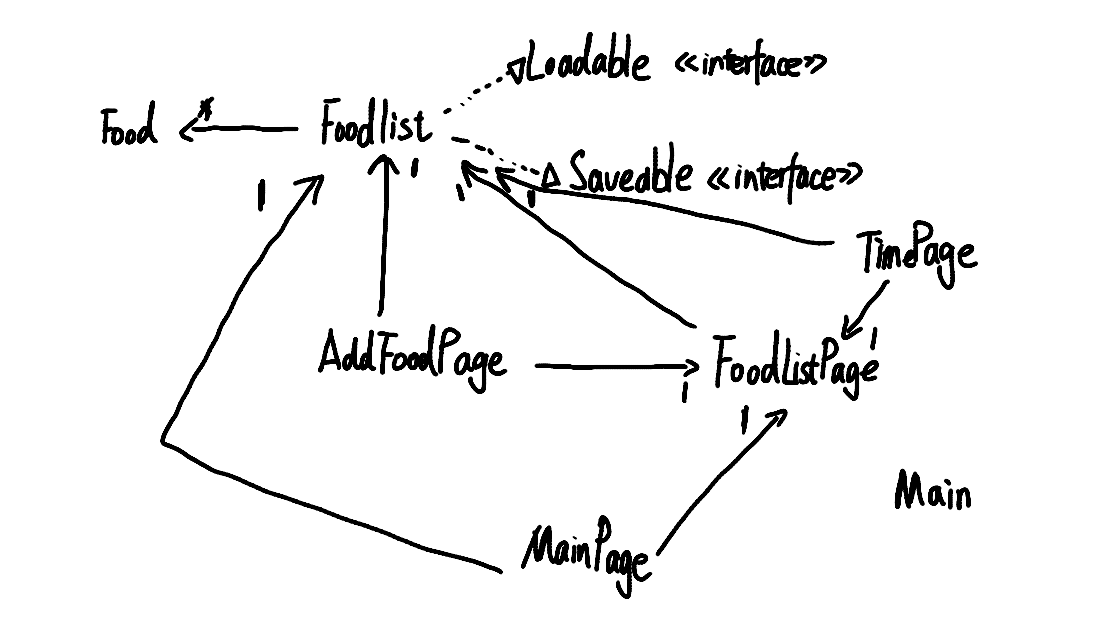 Loadable <<interface>>
Food * Foodlist
Saveable <<interface>>
1 1 1 1
TimePage
AddFoodPage 1 FoodListPage 1
1
Main
MainPage